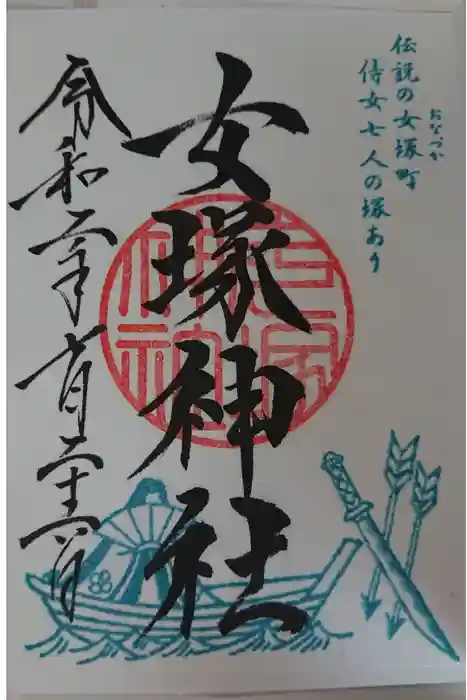 伝説の女塚町
おなづか
侍女七人の塚あり
女塚神社
令和二年十一月二十六日